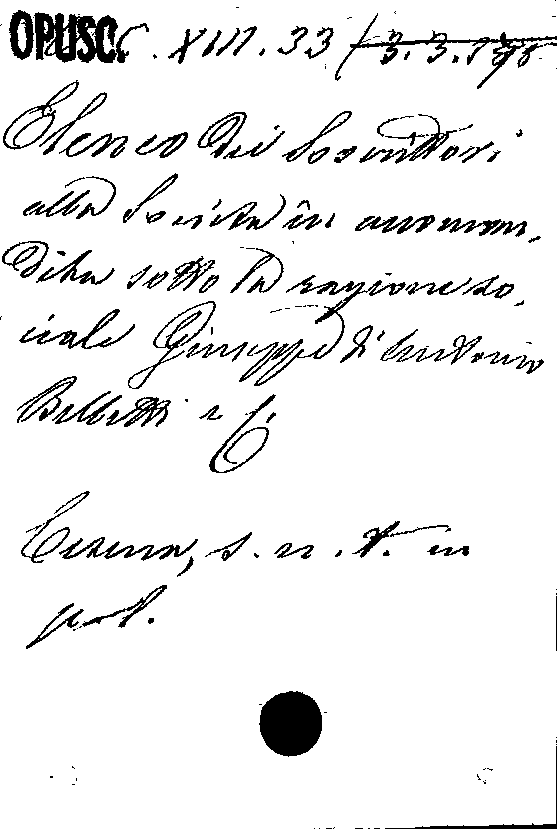 OPUSC. XIII. 33 / 3.3.
Elenco dei Soscrittori
alla Società in accoman,
dita sotto la ragione so,
ciale Giuseppe di Antonio
Belletti e C.
Cesena, s. n. t. in
pot.